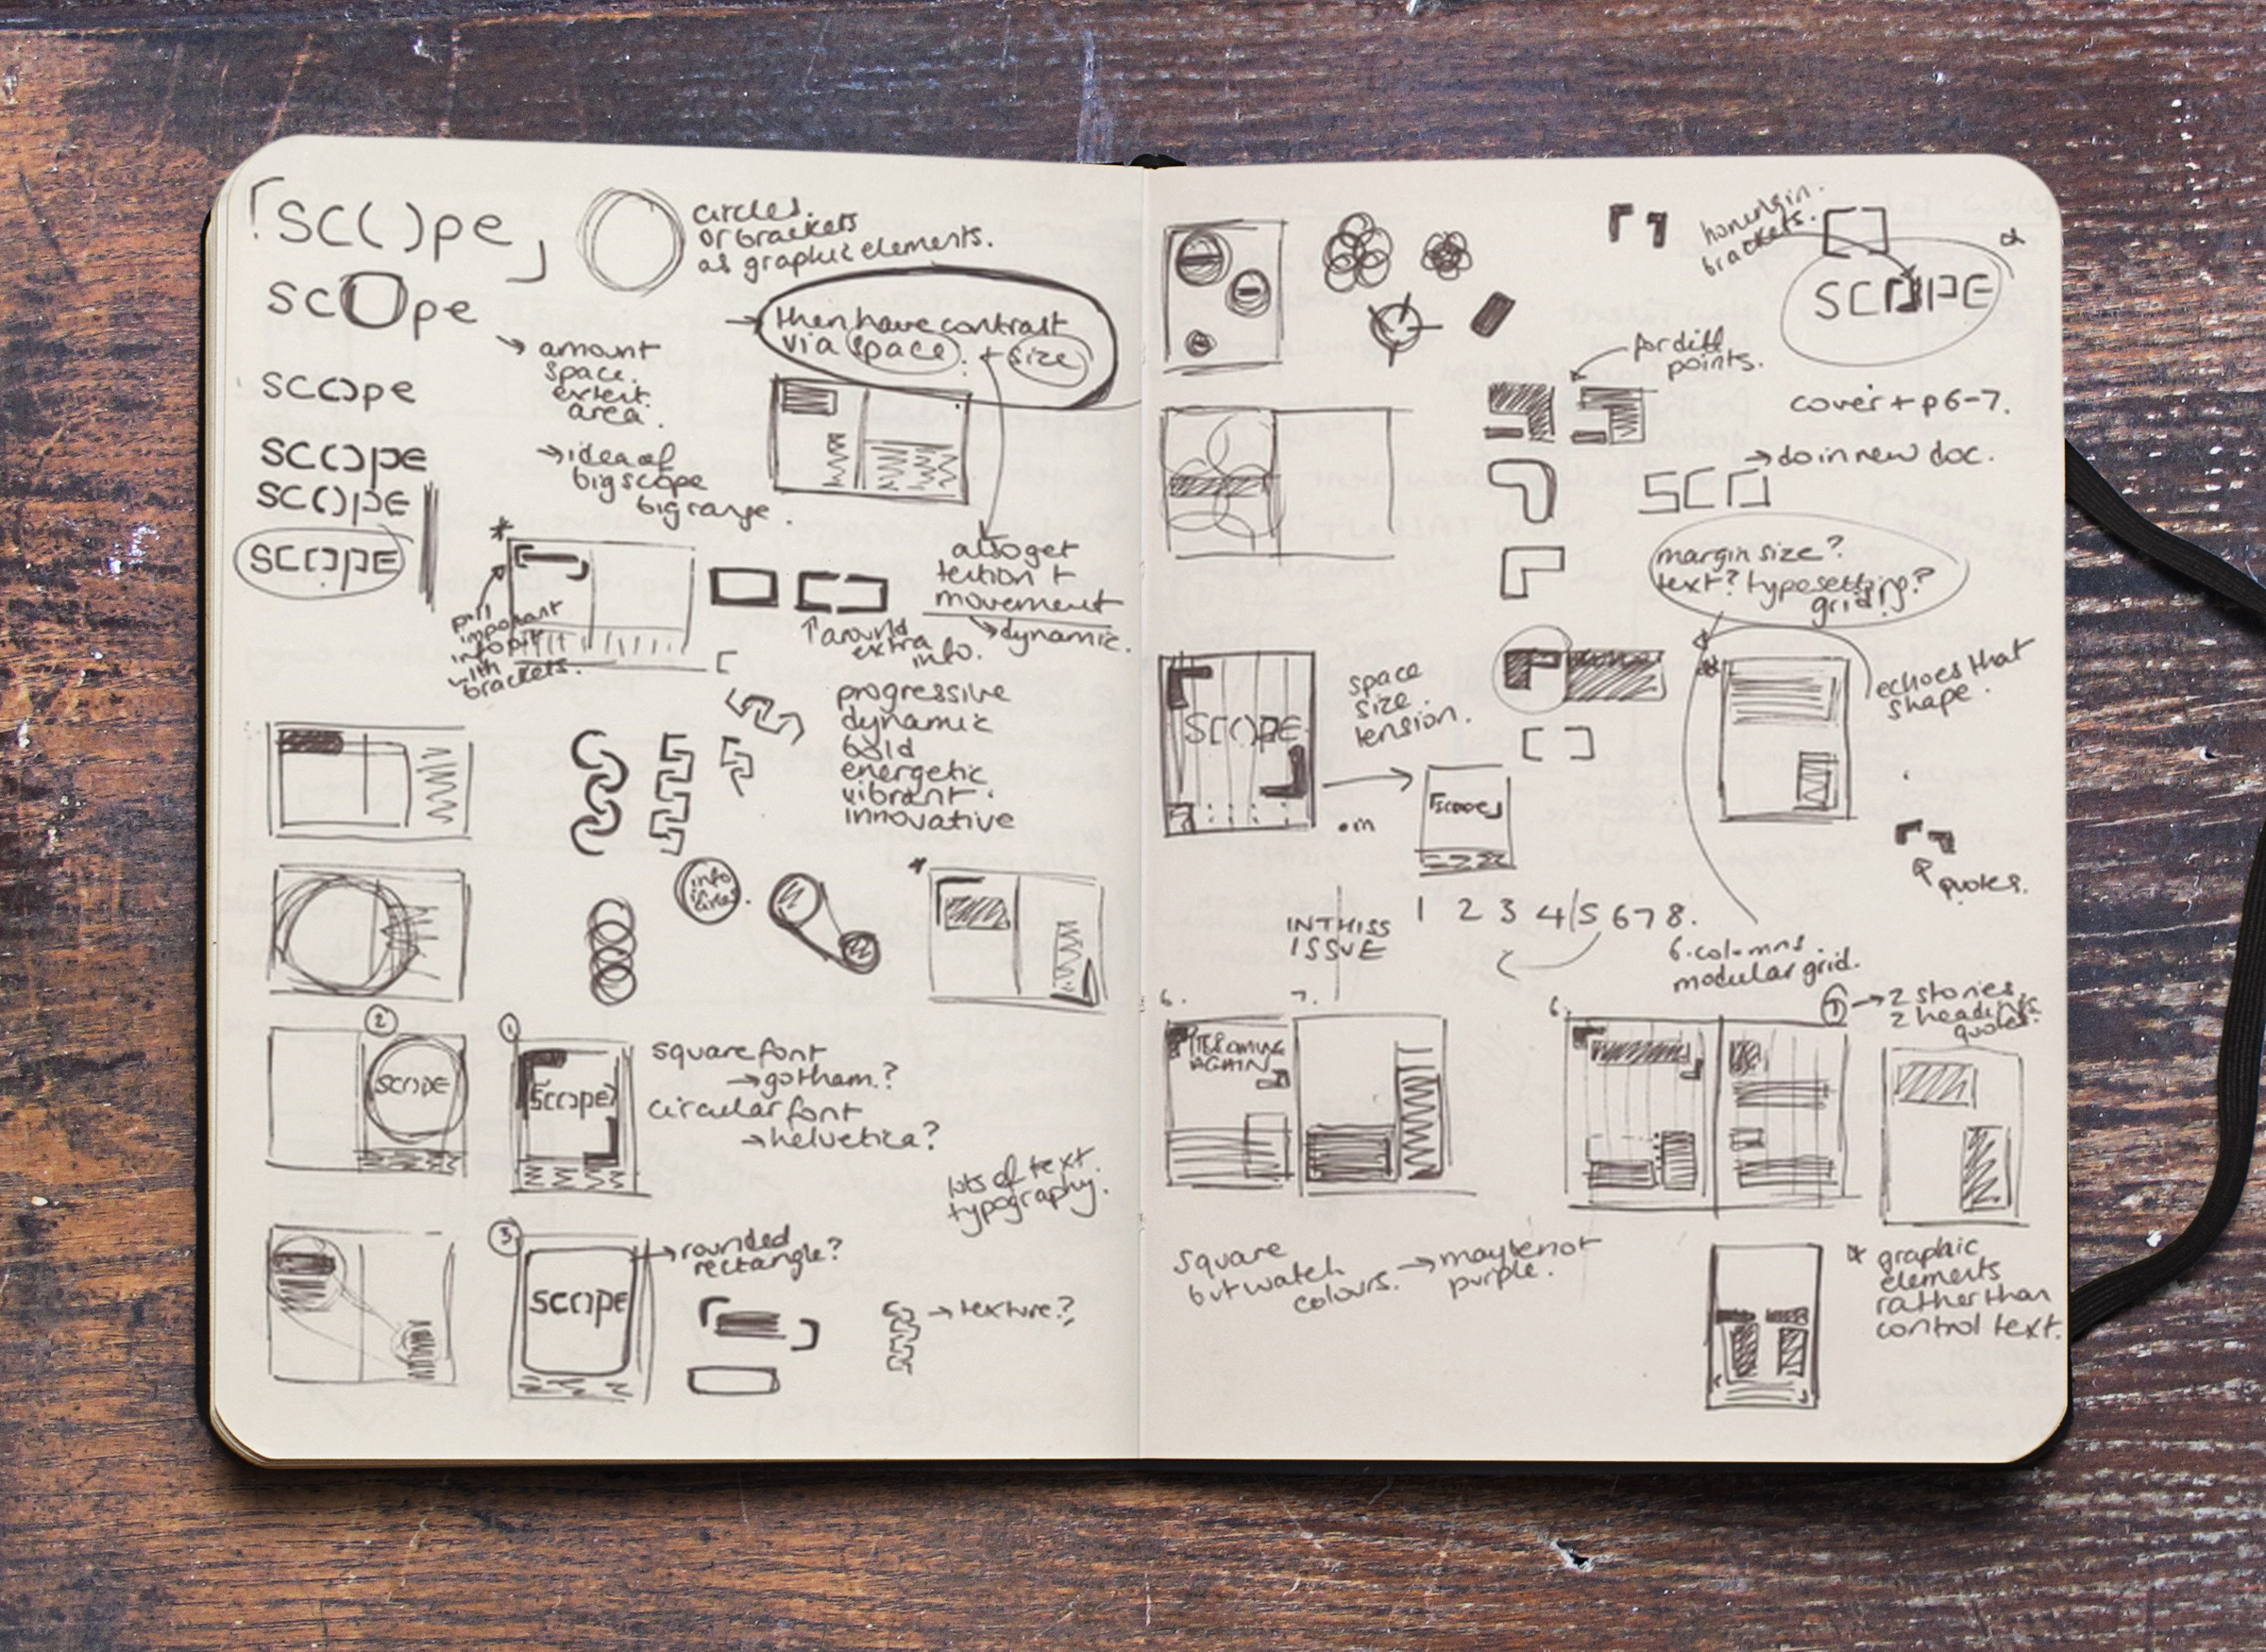 SC()pe
circles.
or brackets
as graphic elements.
SCOpe
then have contrast
via space. + size
→ amount
space.
extent.
area.
SC()pe
→ idea of
big scope
big range.
SC()pe
SC()PE
SC[]PE
*
pull
important
info out
with
brackets.
also get
tension +
movement
→ dynamic.
↑ around
extra
info.
progressive
dynamic
bold
energetic
vibrant.
innovative
info
in
circles.
*
②
①
SCOPE
SCOPE
square font
→ gotham?
circular font
→ helvetica?
lots of text.
typography.
③
SCOPE
→ rounded
rectangle?
→ texture?
brackets.
SC[]PE
for diff
points.
cover + p 6-7.
→ do in new doc.
SC[]
margin size?
text? typesetting?
grid?
echoes that
shape.
SC()PE
space
size
tension.
SCOPE
quotes.
IN THIS
ISSUE
1 2 3 4/5 6 7 8.
6 columns.
modular grid.
6.
7.
AGAIN
6.
⑦ → 2 stories.
2 headings
quotes.
square
but watch
colours. → maybe not
purple.
* graphic
elements
rather than
control text.